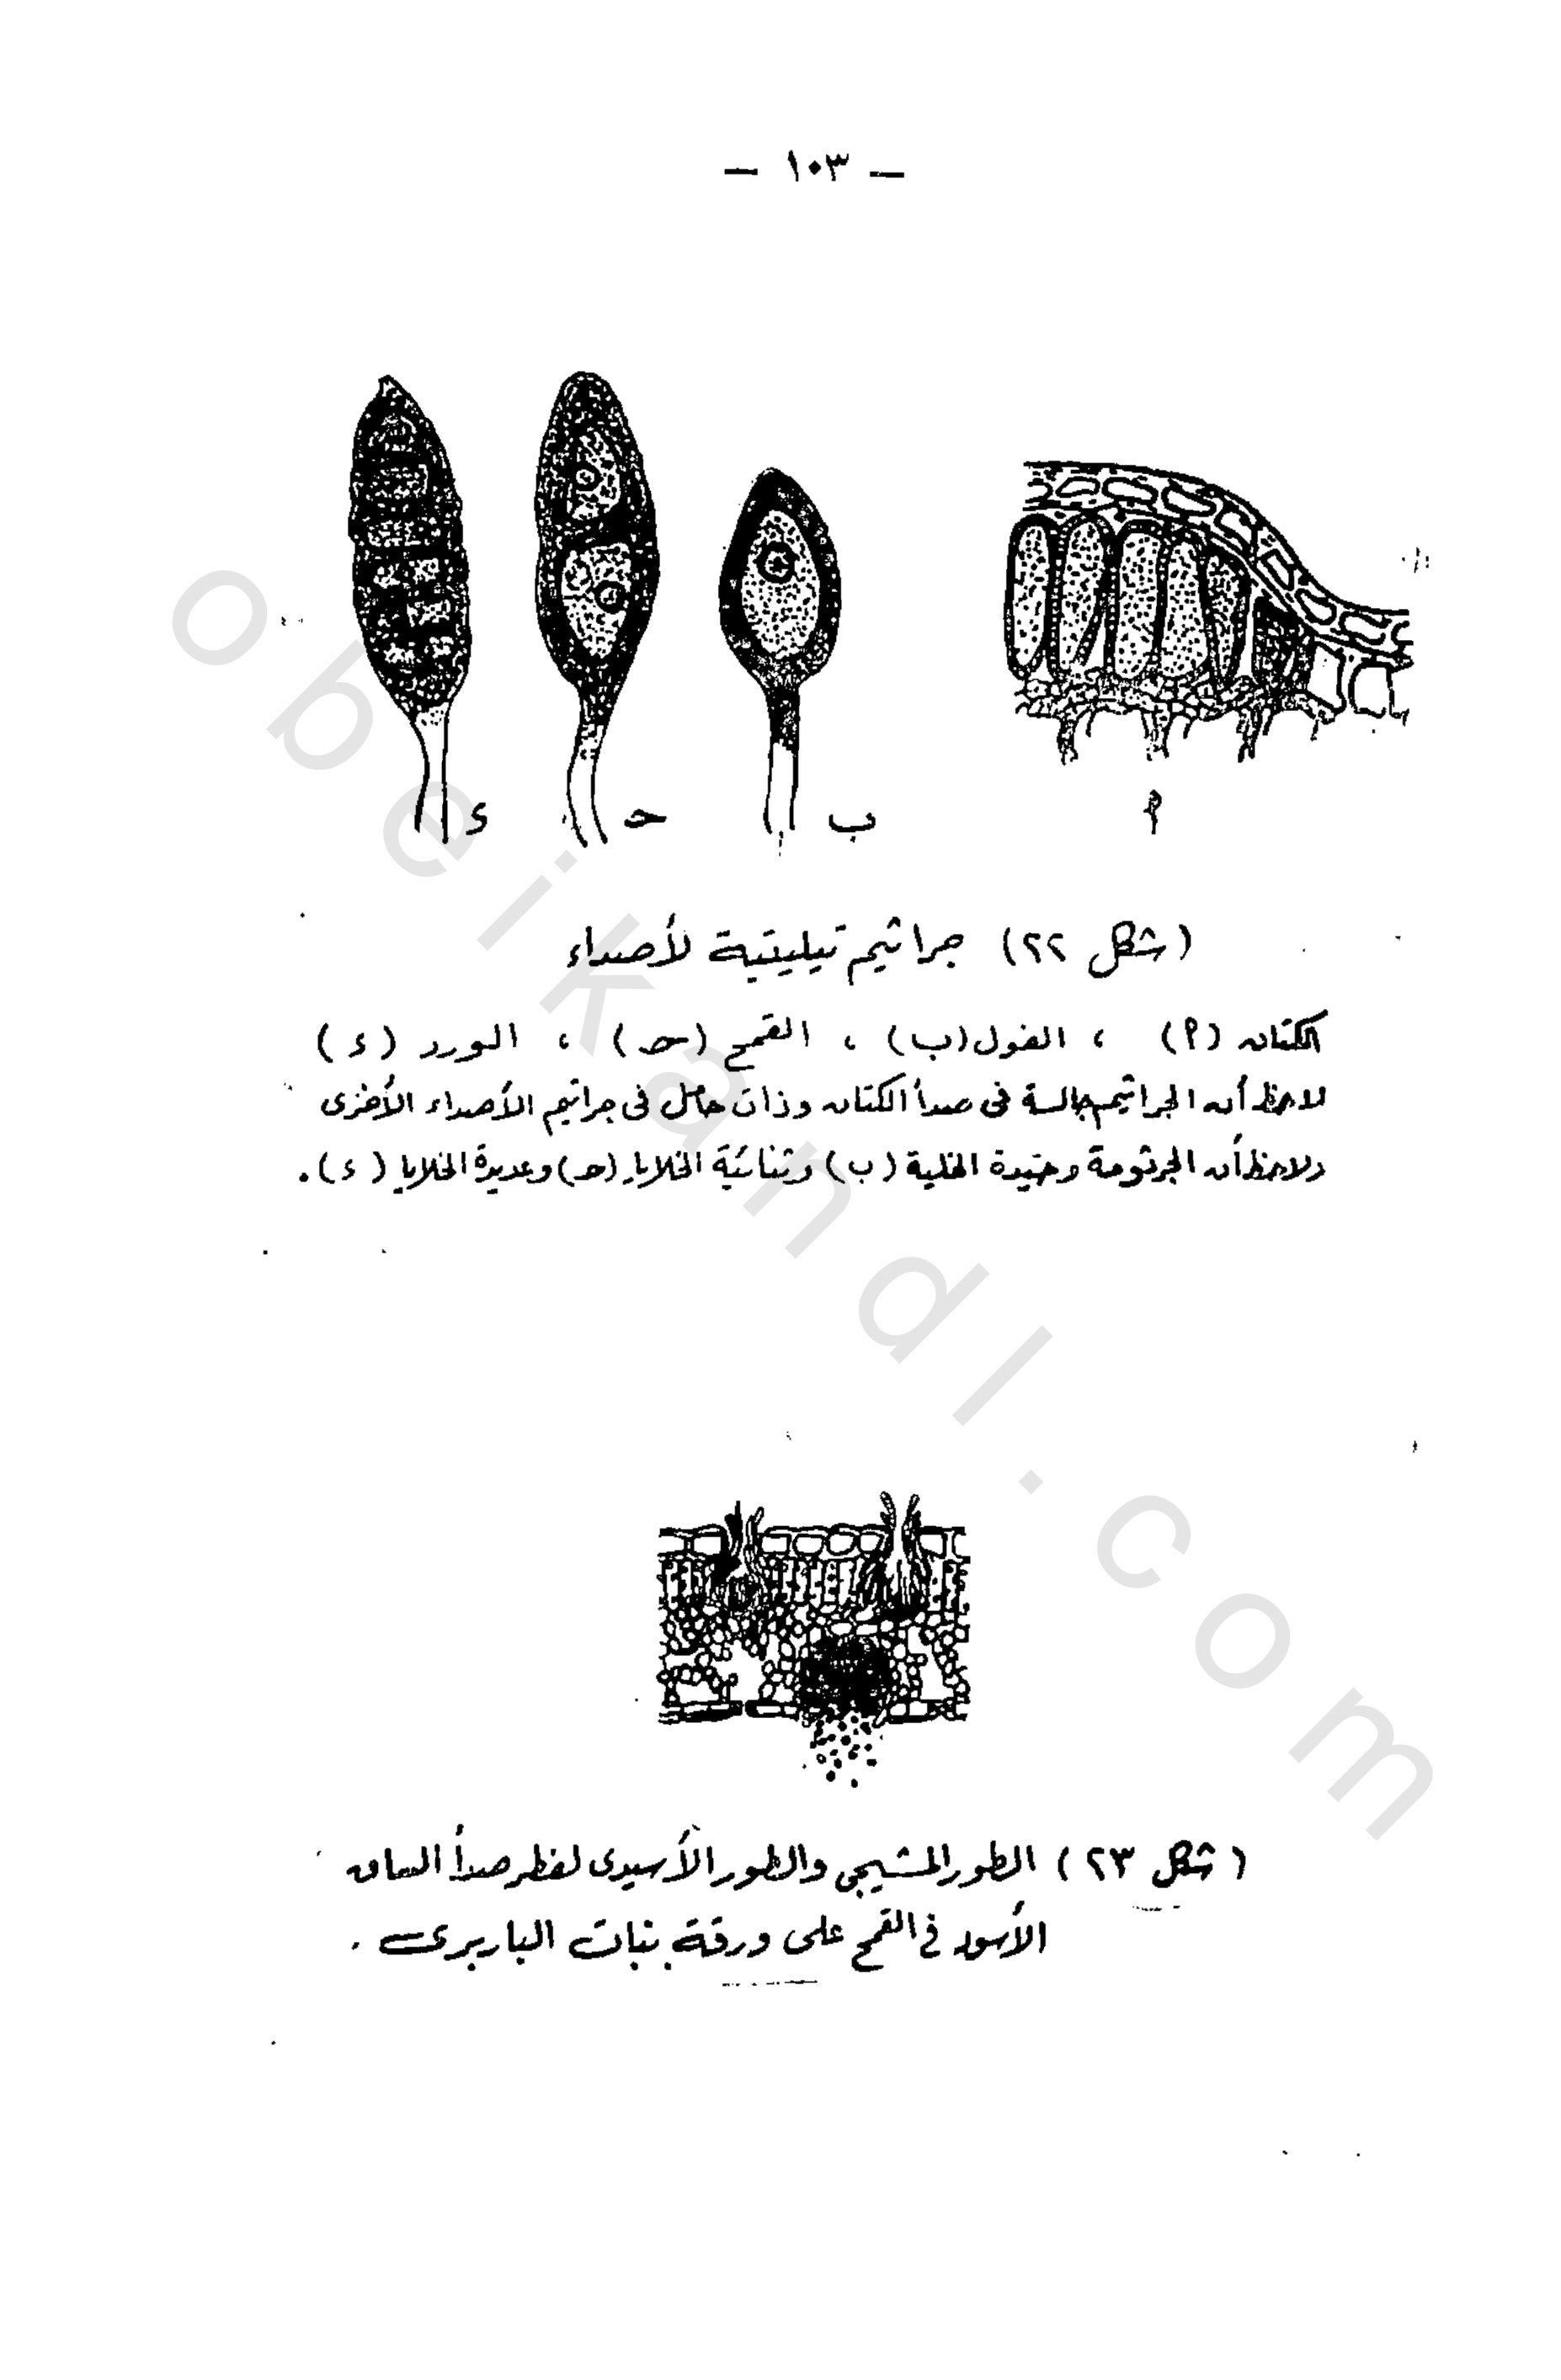 — ١٠٣ —
أ ب حـ د
(شكل ٢٢) جراثيم تيليتية لأصداء
الكتان (أ) ، الفول (ب) ، القمح (حـ) ، الورد (د)
لاحظ أن الجراثيم جالسة فى صدأ الكتان وذات حامل فى جراثيم الأصداء الأخرى
ولاحظ أن الجرثومة وحيدة الخلية (ب) وثنائية الخلايا (حـ) وعديدة الخلايا (د) .
(شكل ٢٣) الطور المشيجى والطور الأسيدى لفطر صدأ الساق
الأسود فى القمح على ورقة نبات الباربرى .
obeikandl.com